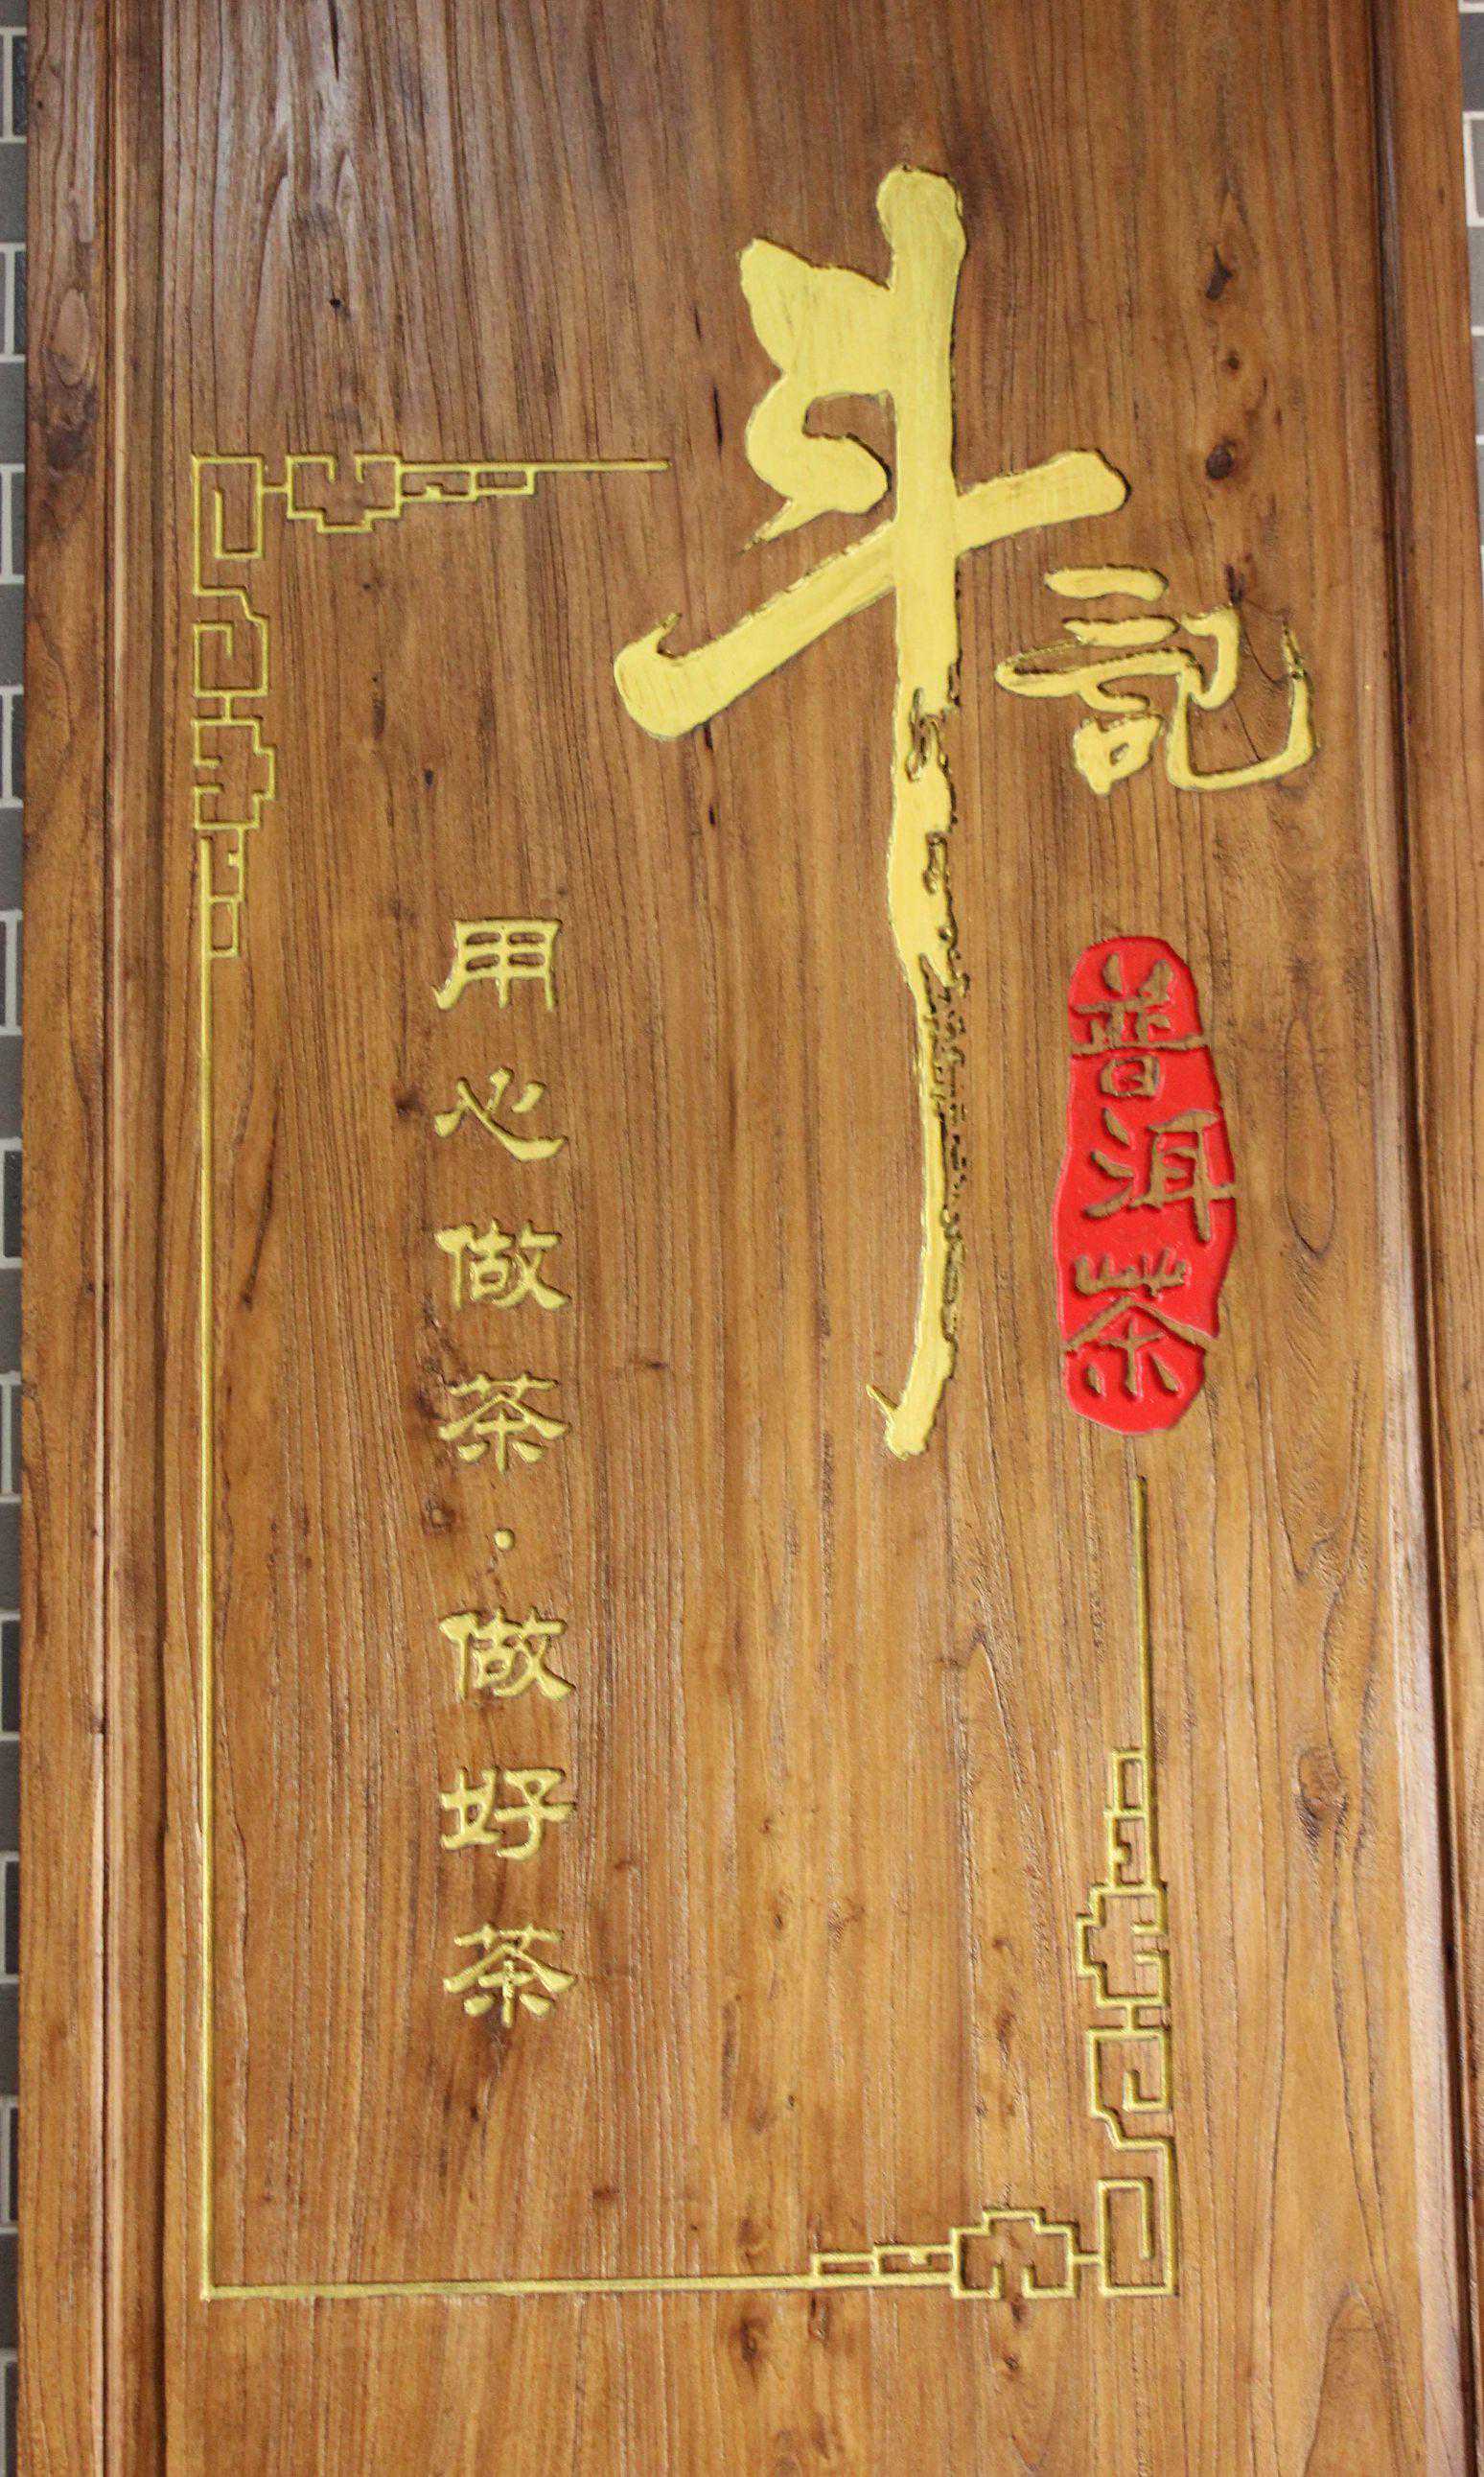 斗
記
普洱茶
用心做茶·做好茶